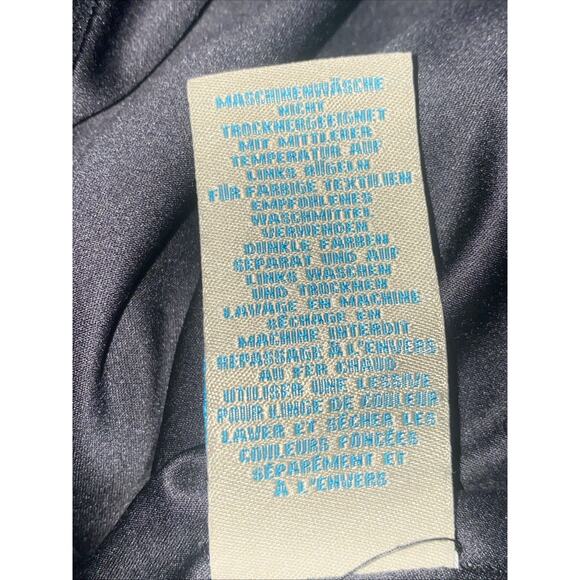 MASCHINENWÄSCHE
NICHT
TROCKNERGEEIGNET
MIT MITTLERER
TEMPERATUR AUF
LINKS BÜGELN
FÜR FARBIGE TEXTILIEN
EMPFOHLENES
WASCHMITTEL
VERWENDEN
DUNKLE FARBEN
SEPARAT UND AUF
LINKS WASCHEN
UND TROCKNEN
LAVAGE EN MACHINE
SÉCHAGE EN
MACHINE INTERDIT
REPASSAGE À L'ENVERS
AU FER CHAUD
UTILISER UNE LESSIVE
POUR LINGE DE COULEUR
LAVER ET SÉCHER LES
COULEURS FONCÉES
SÉPARÉMENT ET
À L'ENVERS